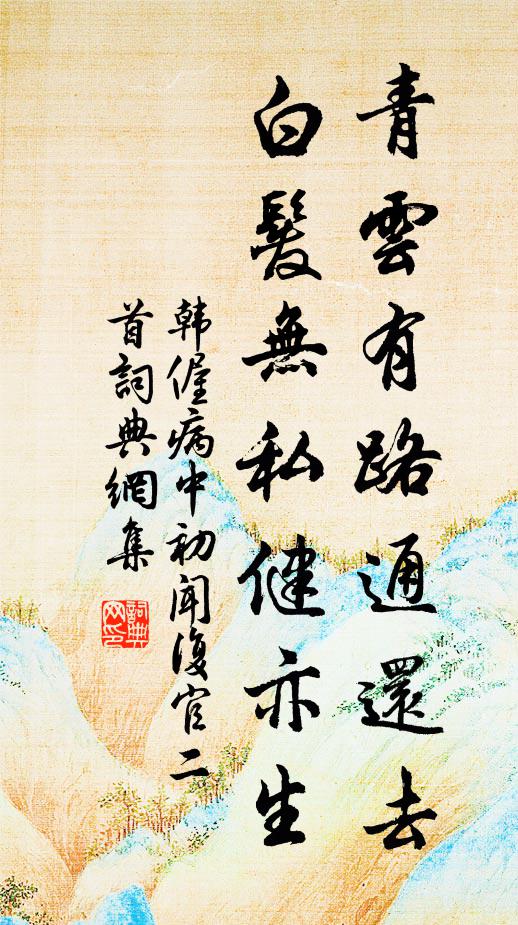 青雲有路通還去
白髮無私健亦生
韩偓病中初闻復官二
首詞典網集
詞典网印